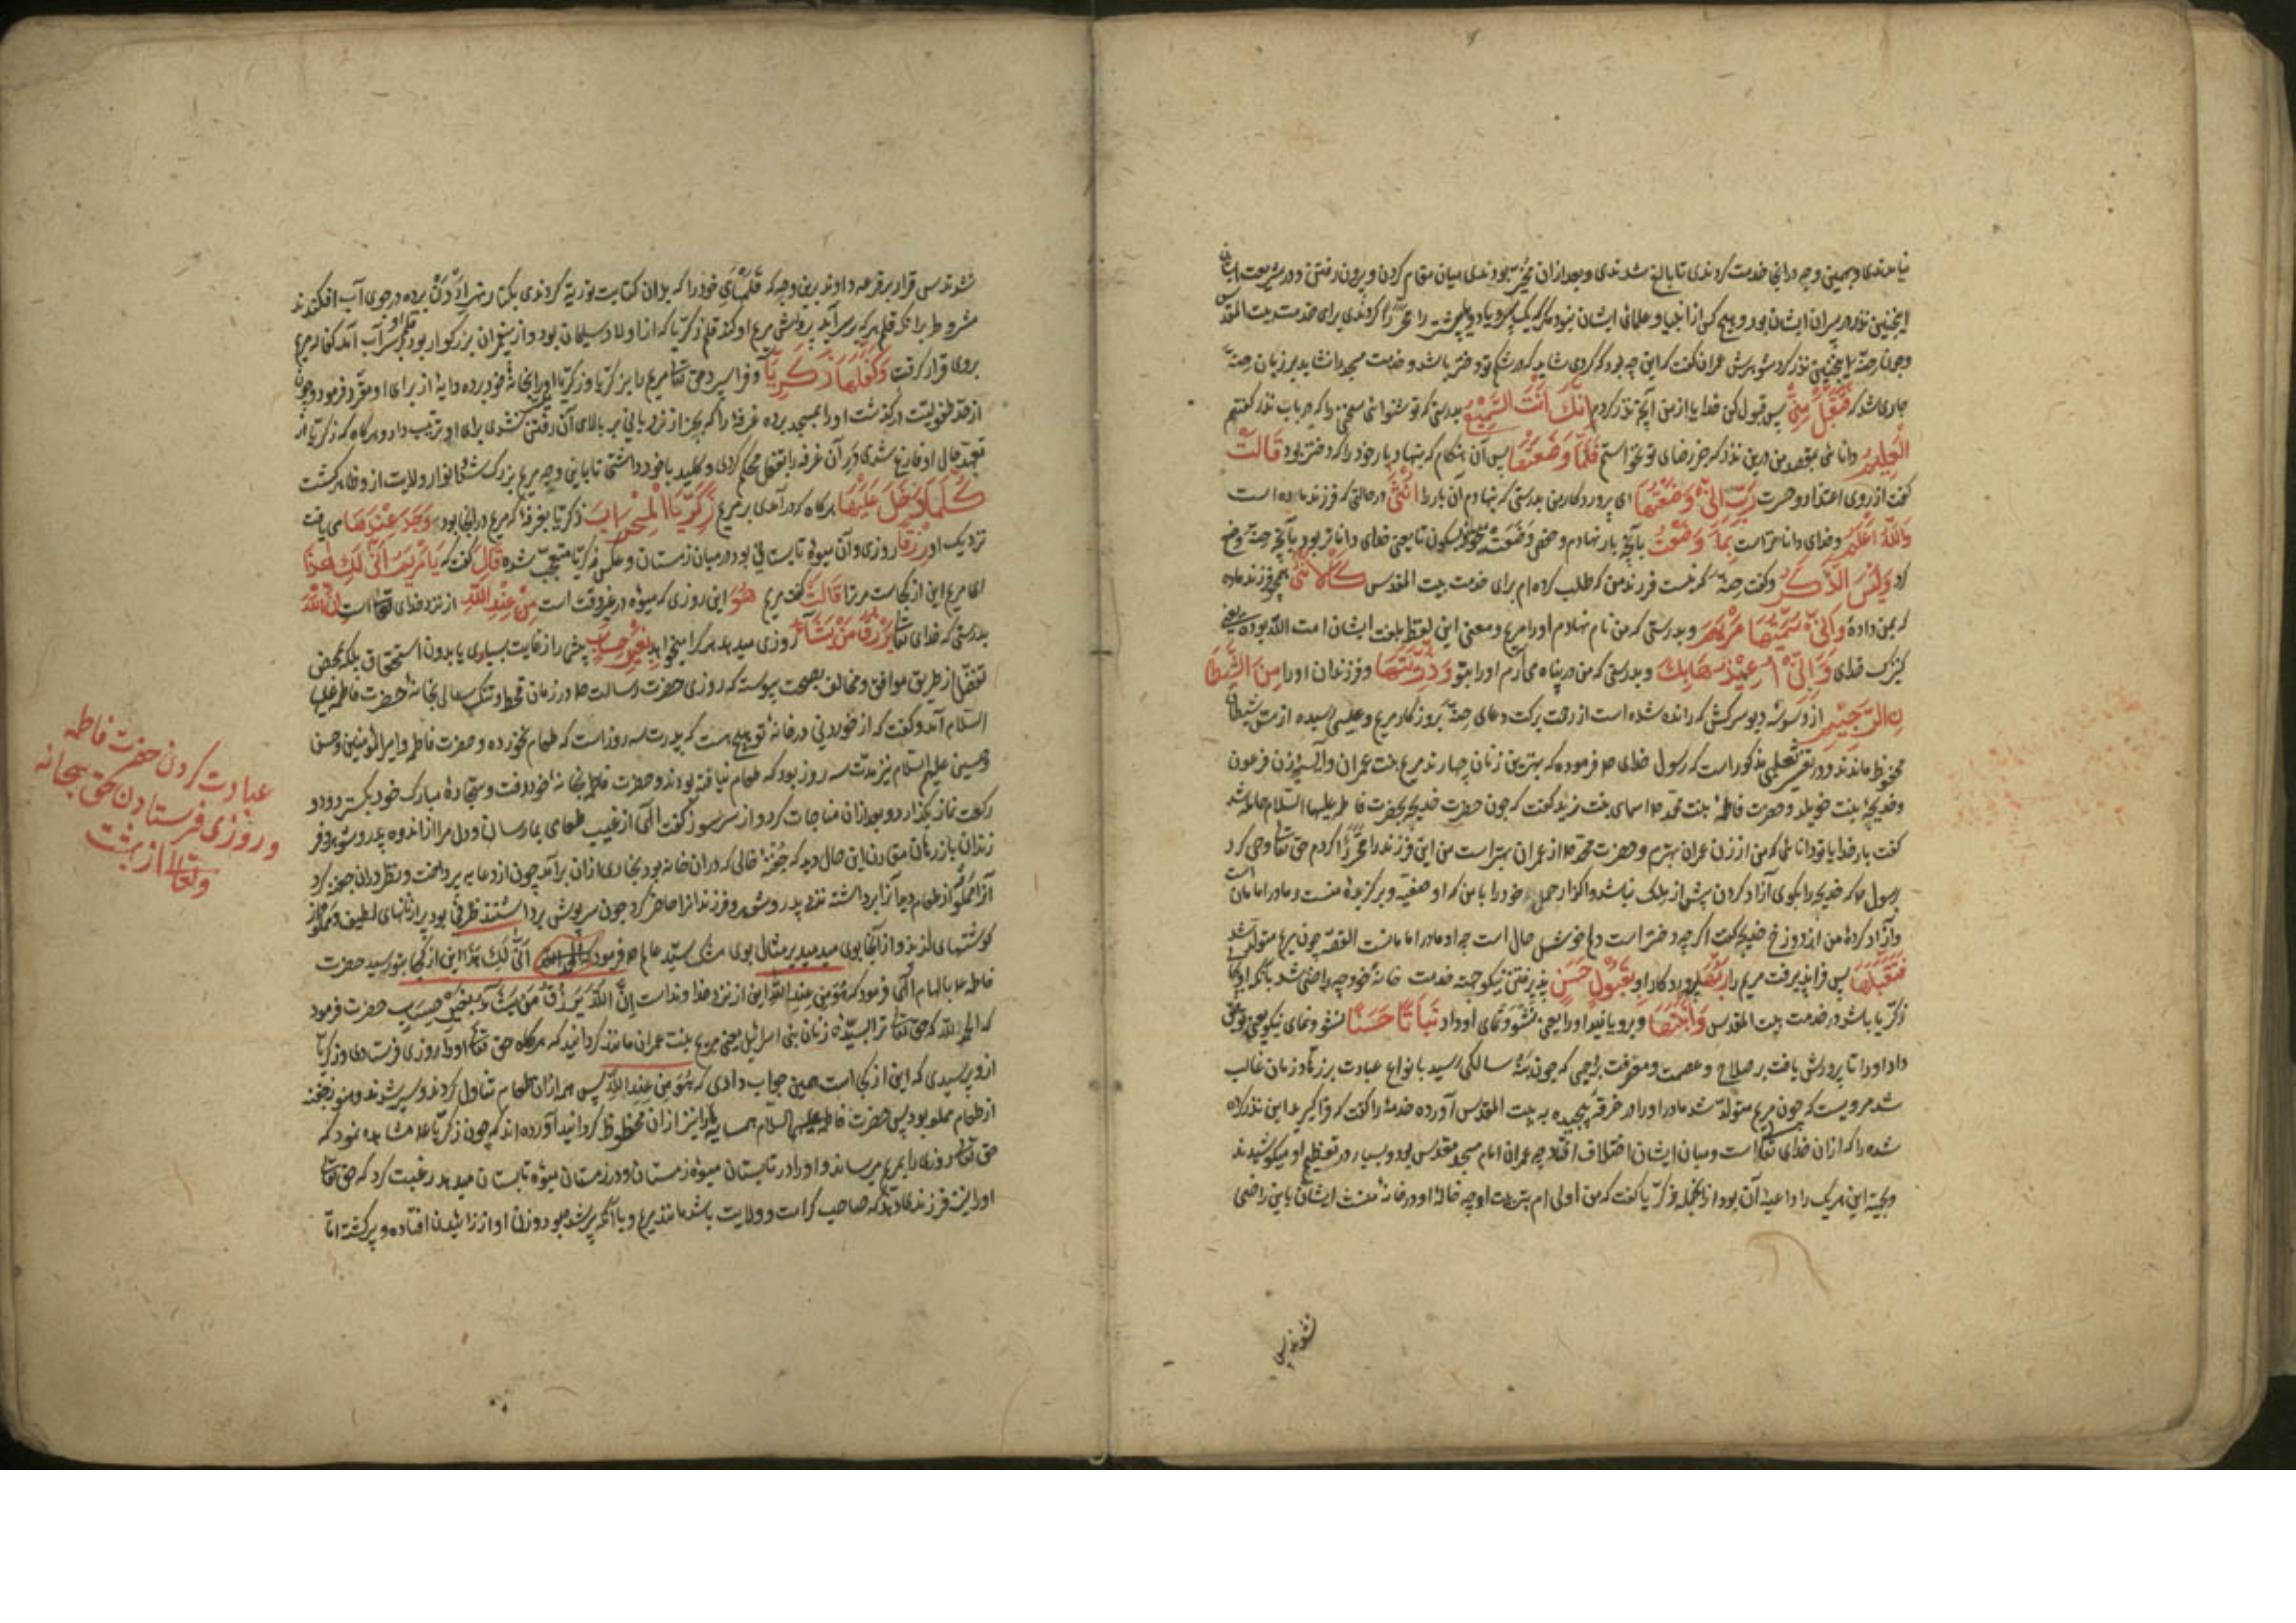 نیامدندی و بهمین وجه در آنجا خدمت کردندی تا بالغ شدندی و بعد از ان مخیّر بودندی میان مقام کردن و بیرون رفتن و در شریعت ایشان
اینچنین نذر در پسران ایشان بود و هیچ کس از انبیا و علمای ایشان نبود مگر که یک پسر و یا دو یا بیشتر را محرّر کردندی برای خدمت بیت المقدس
و چون حنّه اینچنین نذر کرد شوهرش عمران گفت که این چه بود که کردی شاید که در شکم تو دختر باشد و خدمت مسجد را نشاید بر زبان حنّه
جاری شد که فَتَقَبَّلْ مِنِّي پس قبول کن خدایا از من آنچه نذر کردم إِنَّكَ أَنْتَ السَّمِيعُ بدرستی که تو شنوائی سخنی را که در باب نذر گفتم
الْعَلِيمُ دانائی بقصد من درین نذر که جز رضای تو نخواستم فَلَمَّا وَضَعَتْهَا پس آن هنگام که بنهاد بار خود را که دختر بود قَالَتْ
گفت از روی اعتذار و حسرت رَبِّ إِنِّي وَضَعْتُهَا ای پروردگار من بدرستی که بنهادم آن بار را أُنْثَى در حالتی که فرزند ماده است
وَاللَّهُ أَعْلَمُ و خدای داناتر است بِمَا وَضَعَتْ بآنچه بار نهادم و حفص وَضَعَتْ میخواند بسکون تا یعنی خدای داناتر بود بآنچه حنّه وضع
کرد وَلَيْسَ الذَّكَرُ و گفت حنّه که نیست فرزند من که طلب کرده ام برای خدمت بیت المقدس كَالْأُنْثَى همچو فرزند ماده
که بمن داده وَإِنِّي سَمَّيْتُهَا مَرْيَمَ و بدرستی که من نام نهادم او را مریم و معنی این لفظ بلغت ایشان امت اللّه بوده یعنی
کنیزک خدای وَإِنِّي أُعِيذُهَا بِكَ و بدرستی که من در پناه می آرم او را بتو وَذُرِّيَّتَهَا و فرزندان او را مِنَ الشَّيْطَا
نِ الرَّجِيمِ از وسوسه دیو سرکش که رانده شده است از رحمت برکت دعای حنّه بروزگار مریم و عیسی رسیده از مسّ شیطان
محفوظ ماندند و در تفسیر ثعلبی مذکور است که رسول خدای ص فرموده که بهترین زنان چهارند مریم بنت عمران و آسیه زن فرعون
و خدیجه بنت خویلد و حضرت فاطمه بنت محمّد ص اسمای بنت گفت که چون حضرت خدیجه بحضرت فاطمه علیها السلام حامله شد
گفت بار خدایا تو دانائی که من از زن عمران بهترم و حضرت محمّد ص از عمران بهتر است من این فرزند را محرّر کردم حق تعالی وحی کرد
برسول ص که خدیجه را بگوی آزاد کردن پیش از ملک نباشد واگذار حمل خود را با من که او صفیّه و برگزیده منست و مادر امامان است
و آزاد کرده من از دوزخ خدیجه گفت اگر چه دختر است دلم خوشحال است چه او مادر امامانست القصّه چون مریم متولّد شد
فَتَقَبَّلَهَا پس فرا پذیرفت مریم را رَبُّهَا پروردگار او بِقَبُولٍ حَسَنٍ پذیرفتنی نیکو جهة خدمت خانه خود چه راضی شد بآنکه او بجای
ذکریا باشد در خدمت بیت المقدس وَأَنْبَتَهَا و برویانید او را یعنی نشو و نمای او داد نَبَاتًا حَسَنًا نشو و نمای نیکو یعنی توفیق
داد او را تا پرورش یافت بر صلاح و عصمت و معرفت بوجهی که چون به نه سالگی رسید بانواع عبادت بر زهّاد زمان غالب
شد مرویست که چون مریم متولّد شد مادر او را در خرقه پیچیده به بیت المقدس آورده خدمه را گفت که فرا گیرید این نذر کرده
شده را که از ان خدای تعالی است و میان ایشان اختلاف افتاد چه عمران امام مسجد مقدس بود و بسیار در تعظیم او میکوشیدند
و بجهة این هر یک را داعیه آن بود از انجمله ذکریا گفت که من اولی ام بتربیت او چه خاله او در خانه منست ایشان باین راضی
نشوندسی
نشدند پس قرار بر قرعه دادند برین وجه که قلمهای خود را که بدان کتابت توریة کردندی بکنار نهر اردن برده در جوی آب افکندند
مشروط بر انکه قلم هر که بر سر آید پرورش مریم او کند قلم زکریا که از اولاد سلیمان بود و از پیغمبران بزرگوار بود قلم او بر سر آب آمد کفاله مریم
بروی قرار گرفت وَكَفَّلَهَا زَكَرِيَّا و فرا سپرد حق تعالی مریم را بزکریا و زکریا او را بخانه خود برده دایه از برای او مقرّر فرمود و چون
از حدّ طفولیّت در گذشت او را بمسجد برده غرفه را که بجز از نردبانی بر بالای آن رفتن نشدی برای او ترتیب داد و هر گاه که زکریا از
تعهد حال او فارغ شدی در آن غرفه را بقفل محکم کردی و کلید با خود داشتی تا باین وجه مریم بزرگ شد و انوار ولایت از و ظاهر گشت
كُلَّمَا دَخَلَ عَلَيْهَا هر گاه که در آمدی بر مریم زَكَرِيَّا الْمِحْرَابَ زکریا بغرفه که مریم در انجا بود وَجَدَ عِنْدَهَا می یافت
نزدیک او رِزْقًا روزی و آن میوه تابستانی بود در میان زمستان و عکس زکریا متعجّب شده قَالَ گفت که يَا مَرْيَمُ أَنَّى لَكِ هَذَا
ای مریم این از کجاست مر ترا قَالَتْ گفت مریم هُوَ این روزی که میوه در غیر وقت است مِنْ عِنْدِ اللَّهِ از نزد خدای تعالی است إِنَّ اللَّهَ
بدرستی که خدای تعالی يَرْزُقُ مَنْ يَشَاءُ روزی میدهد هر کرا میخواهد بِغَيْرِ حِسَابٍ بیشمار از غایت بسیاری یا بدون استحقاق بلکه بمحض
تفضّل از طریق موافق و مخالف بصحت پیوسته که روزی حضرت رسالت ص در زمان قحط و تنگ سالی بخانه حضرت فاطمه علیها
السلام آمد و گفت که از خوردنی در خانه تو هیچ هست که پدرت سه روز است که طعام نخورده و حضرت فاطمه و امیر المؤمنین و حسن
و حسین علیهم السلام نیز مدت سه روز بود که طعام نیافته بودند و حضرت فاطمه بخانه خود رفت و سجّاده مبارک خود بگسترد و دو
رکعت نماز بگذارد و بعد از ان مناجات کرد و از سر سوز گفت الهی از غیب طعامی بما رسان و دل مرا از اندوه پدر و شوهر و فر
زندان باز رهان مقارن این حال دید که جفنه خالی که در ان خانه بود بخاری از ان بر آمد چون از دعا بپرداخت و نظر در ان جفنه کرد
آنرا مملوّ از طعام دید آنرا برداشته نزد پدر و شوهر و فرزندان حاضر کرد چون سرپوش برداشتند ظرفی بود پر از نانهای لطیف و مملوّ از
گوشتهای لذیذ و از آنجا بوی میدمید بر مثال بوی مشک سیّد عالم ص فرمود که أَنَّى لَكِ هَذَا این از کجا بتو رسید حضرت
فاطمه ع بالهام الهی فرمود که هُوَ مِنْ عِنْدِ اللَّهِ این از نزد خداوند است إِنَّ اللَّهَ يَرْزُقُ مَنْ يَشَاءُ بِغَيْرِ حِسَابٍ حضرت فرمود
که الحمد للّه که حق تعالی ترا بسیّده زنان بنی اسرائیل یعنی مریم بنت عمران مانند گردانید که هر گاه حق تعالی او را روزی فرستادی و زکریا
از و پرسیدی که این از کجا است همین جواب دادی که هُوَ مِنْ عِنْدِ اللَّهِ پس همه از ان طعام تناول کردند و سیر شدند و هنوز جفنه
از طعام مملو بود پس حضرت فاطمه علیها السلام همسایه ها را نیز از ان محظوظ گردانید آورده اند که چون زکریا ع مشاهده نمود که
حق تعالی روزی را بمریم میرساند و او را در تابستان میوه زمستان و در زمستان میوه تابستان میدهد رغبت کرد که حق تعالی
او را نیز فرزندی دهد که صاحب کرامت و ولایت باشد مانند مریم و با آنکه پیر شده بود و زن او از زائیدن افتاده و پیر گشته امّا
عبادت کردن حضرت فاطمه
و روزی فرستادن حق سبحانه
وتعالی از بهشت